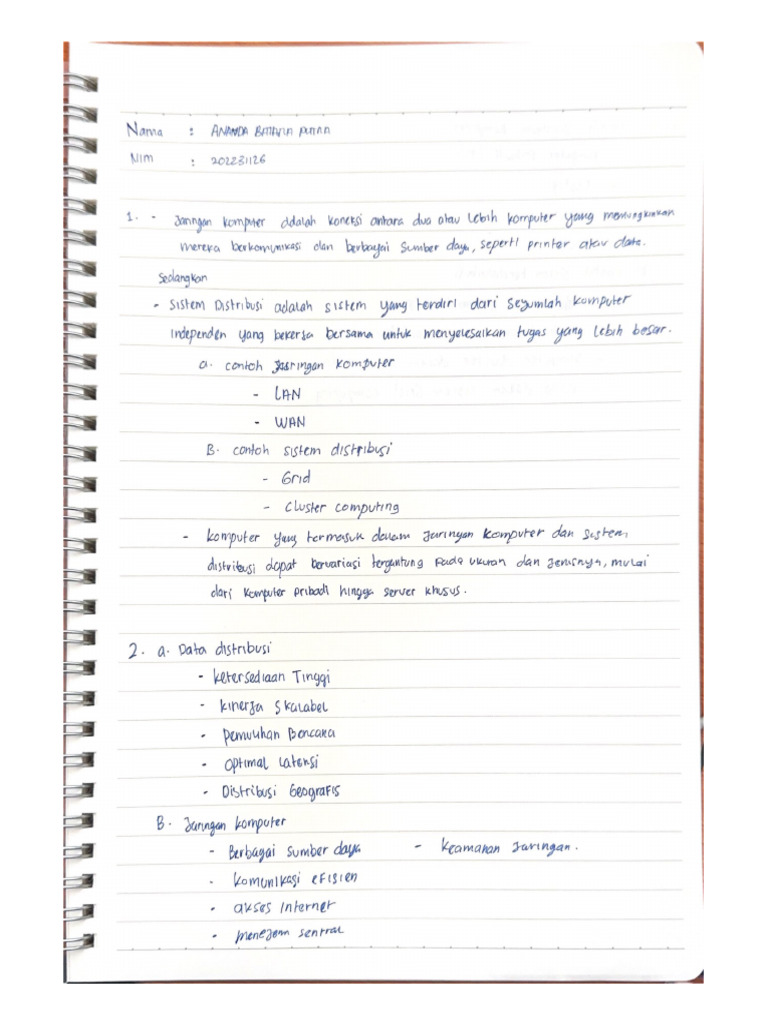 Nama : ANANDA BATAVIA PUTRA
Nim : 202231126
1. - Jaringan komputer adalah koneksi antara dua atau lebih komputer yang memungkinkan
mereka berkomunikasi dan berbagai sumber daya, seperti printer atau data.
Sedangkan
- Sistem Distribusi adalah sistem yang terdiri dari sejumlah komputer
independen yang bekerja bersama untuk menyelesaikan tugas yang lebih besar.
a. contoh Jaringan komputer
- LAN
- WAN
B. contoh sistem distribusi
- Grid
- Cluster computing
- komputer yang termasuk dalam Jaringan komputer dan sistem
distribusi dapat bervariasi tergantung pada ukuran dan jenisnya, mulai
dari komputer pribadi hingga server khusus.
2. a. Data distribusi
- ketersediaan Tinggi
- kinerja Skalabel
- pemulihan Bencana
- optimal Latensi
- Distribusi Geografis
B. Jaringan komputer
- Berbagai sumber daya - keamanan Jaringan.
- komunikasi efisien
- akses internet
- menejem sentral